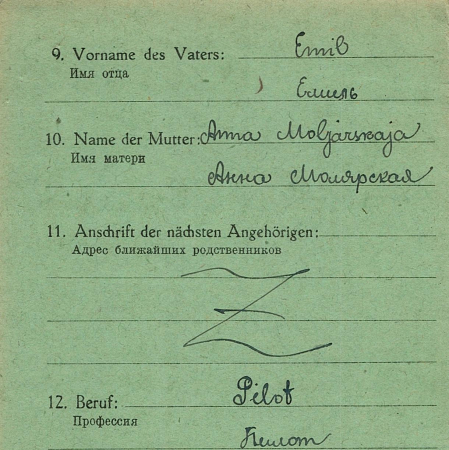 9. Vorname des Vaters: Emil
Имя отца
Емель
10. Name der Mutter: Anna Moljarskaja
Имя матери
Анна Молярская
11. Anschrift der nächsten Angehörigen:
Адрес ближайших родственников
12. Beruf: Pilot
Профессия
Пилот